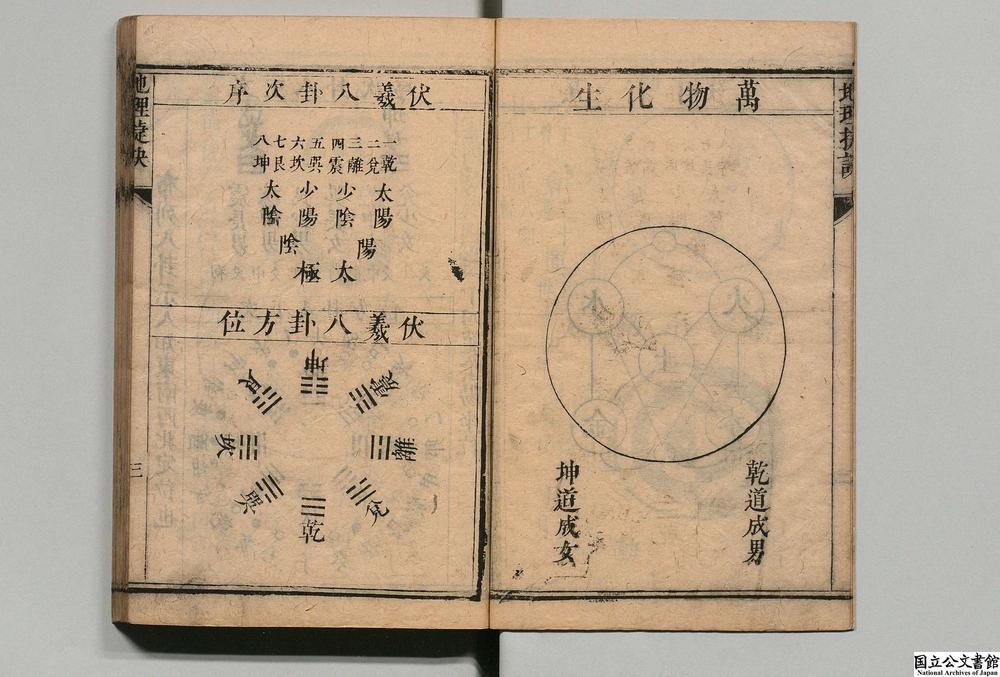 萬物化生
乾道成男
坤道成女
伏羲八卦次序
一乾
二兌
三離
四震
五巽
六坎
七艮
八坤
太陽
少陰
少陽
太陰
陽
陰
太極
伏羲八卦方位
坤
震
離
兌
乾
巽
坎
艮
地理
三
国立公文書館
National Archives of Japan